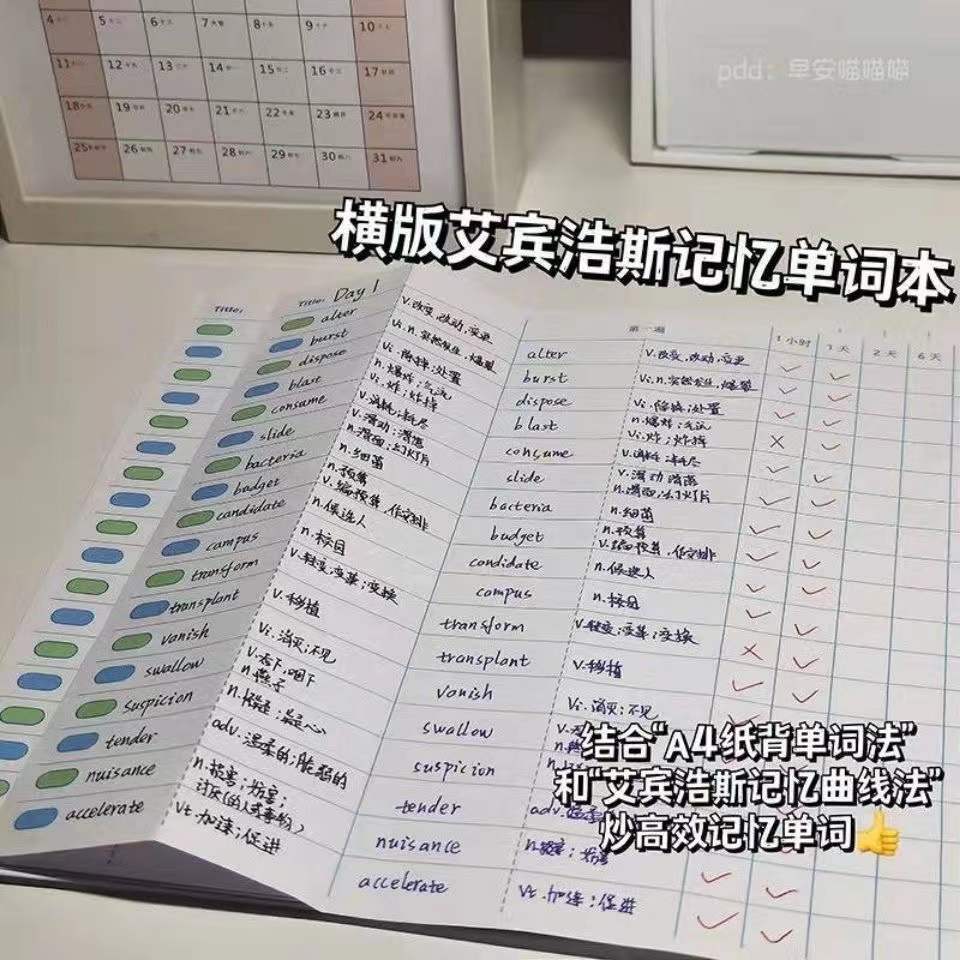 4 5 6 7 8 9 10
11 12 13 14 15 16 17
18 19 20 21 22 23 24
25 26 27 28 29 30 31
pdd：早安喵喵喵
横版艾宾浩斯记忆单词本
Title:
Title: Day 1
alter
burst
dispose
blast
consume
slide
bacteria
budget
candidate
campus
transform
transplant
vanish
swallow
suspicion
tender
nuisance
accelerate
v.改变,改动,变更
vi.n.突然发生,爆裂
vi.除掉;处置
n.爆炸;气流
vi.炸;炸掉
v.消耗;耗尽
v.滑动;滑落
n.滑面;幻灯片
n.细菌
n.预算
v.编预算,作安排
n.候选人
n.校园
v.转变;变革;变换
v.移植
vi.消灭;不见
v.吞下,咽下
n.燕子
n.怀疑;疑心
adv.温柔的;脆弱的
n.损害;妨害;
讨厌(的人或事物)
vt.加速;促进
第一遍 1小时 1天 2天 6天
alter v.改变,改动,变更
burst vi.n.突然发生,爆裂
dispose vi.除掉;处置
blast n.爆炸;气流
vi.炸;炸掉
consume v.消耗;耗尽
slide v.滑动 滑落
n.滑面;幻灯片
bacteria n.细菌
budget n.预算
v.编预算,作安排
candidate n.候选人
campus n.校园
transform v.转变;变革;变换
transplant v.移植
vanish vi.消灭;不见
swallow
suspicion
tender adv.
nuisance n.损害;妨害
accelerate vt.加速;促进
结合“A4纸背单词法”
和“艾宾浩斯记忆曲线法”
炒高效记忆单词👍